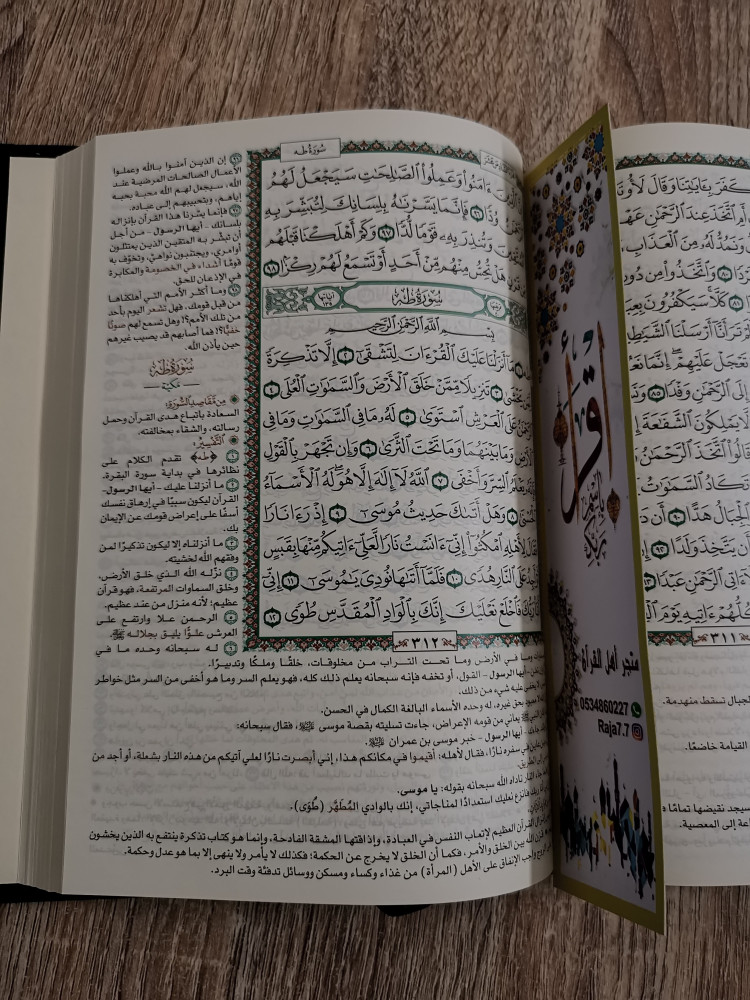 كَفَرَ بِـَٔايَٰتِنَا وَقَالَ لَأُوتَ
أَمِ ٱتَّخَذَ عِندَ ٱلرَّحْمَٰنِ عَهْ
وَنَمُدُّ لَهُۥ مِنَ ٱلْعَذَابِ
وَٱتَّخَذُوا۟ مِن دُونِ
كَلَّا سَيَكْفُرُونَ بِعِبَ
تَرَ أَنَّآ أَرْسَلْنَا ٱلشَّيَٰطِ
تَعْجَلْ عَلَيْهِمْ إِنَّمَا نَعُ
إِلَى ٱلرَّحْمَٰنِ وَفْدًا ٨٥
لَّا يَمْلِكُونَ ٱلشَّفَٰعَةَ
قَالُوا۟ ٱتَّخَذَ ٱلرَّحْمَٰنُ
تَكَادُ ٱلسَّمَٰوَٰتُ
ٱلْجِبَالُ هَدًّا ٩٠ أَن دَ
أَن يَتَّخِذَ وَلَدًا ٩٢
ءَاتِى ٱلرَّحْمَٰنِ عَبْدًا
كُلُّهُمْ ءَاتِيهِ يَوْمَ ٱلْ
٣١١
الجبال تسقط منهدمة.
القيامة خاضعًا.
سيجد نقيضها تمامًا
اعة إلى المعصية.
اقرأ
باسم ربك
متجر أهل القرآن
0534860227
Raja7.7
سُورَةُ طه
ءَامَنُوا۟ وَعَمِلُوا۟ ٱلصَّٰلِحَٰتِ سَيَجْعَلُ لَهُمُ
وُدًّا ٩٦ فَإِنَّمَا يَسَّرْنَٰهُ بِلِسَانِكَ لِتُبَشِّرَ بِهِ
وَتُنذِرَ بِهِۦ قَوْمًا لُّدًّا ٩٧ وَكَمْ أَهْلَكْنَا قَبْلَهُم
هَلْ تُحِسُّ مِنْهُم مِّنْ أَحَدٍ أَوْ تَسْمَعُ لَهُمْ رِكْزًۢا ٩٨
سُورَةُ طه
آيَاتُهَا ١٣٥
بِسْمِ ٱللَّهِ ٱلرَّحْمَٰنِ ٱلرَّحِيمِ
مَآ أَنزَلْنَا عَلَيْكَ ٱلْقُرْءَانَ لِتَشْقَىٰٓ ٢ إِلَّا تَذْكِرَةً
يَخْشَىٰ ٣ تَنزِيلًا مِّمَّنْ خَلَقَ ٱلْأَرْضَ وَٱلسَّمَٰوَٰتِ ٱلْعُلَى ٤
عَلَى ٱلْعَرْشِ ٱسْتَوَىٰ ٥ لَهُۥ مَا فِى ٱلسَّمَٰوَٰتِ وَمَا فِى
ٱلْأَرْضِ وَمَا بَيْنَهُمَا وَمَا تَحْتَ ٱلثَّرَىٰ ٦ وَإِن تَجْهَرْ بِٱلْقَوْلِ
يَعْلَمُ ٱلسِّرَّ وَأَخْفَى ٧ ٱللَّهُ لَآ إِلَٰهَ إِلَّا هُوَ لَهُ ٱلْأَسْمَآءُ
٨ وَهَلْ أَتَىٰكَ حَدِيثُ مُوسَىٰٓ ٩ إِذْ رَءَا نَارًا
فَقَالَ لِأَهْلِهِ ٱمْكُثُوٓا۟ إِنِّىٓ ءَانَسْتُ نَارًا لَّعَلِّىٓ ءَاتِيكُم مِّنْهَا بِقَبَسٍ
عَلَى ٱلنَّارِ هُدًى ١٠ فَلَمَّآ أَتَىٰهَا نُودِىَ يَٰمُوسَىٰٓ ١١ إِنِّىٓ
فَٱخْلَعْ نَعْلَيْكَ إِنَّكَ بِٱلْوَادِ ٱلْمُقَدَّسِ طُوًى ١٢
٣١٢
٩٦ إن الذين آمنوا بالله وعملوا
الأعمال الصالحات المرضية عند
الله، سيجعل لهم الله محبة بحبه
إياهم، وبتحبيبهم إلى عباده.
٩٧ فإنما يسّرنا هذا القرآن بإنزاله
بلسانك - أيها الرسول - من أجل
أن تبشّر به المتقين الذين يمتثلون
أوامري، ويجتنبون نواهيّ، وتخوّف به
قومًا أشداء في الخصومة والمكابرة
في الإذعان للحق.
٩٨ وما أكثر الأمم التي أهلكناها
من قبل قومك، فهل تشعر اليوم بأحد
من تلك الأمم؟! وهل تسمع لهم صوتًا
خفيًّا؟! فما أصابهم قد يصيب غيرهم
حين يأذن الله.
سُورَةُ طه
مكية
مِن مَّقَاصِدِ السُّورَةِ:
السعادة باتباع هدى القرآن وحمل
رسالته، والشقاء بمخالفته.
التَّفْسِيرُ:
١ ﴿طه﴾ تقدم الكلام على
نظائرها في بداية سورة البقرة.
٢ ما أنزلنا عليك - أيها الرسول -
القرآن ليكون سببًا في إرهاق نفسك
أسفًا على إعراض قومك عن الإيمان
بك.
٣ ما أنزلناه إلا ليكون تذكيرًا لمن
وفقهم الله لخشيته.
٤ نزّله الله الذي خلق الأرض،
وخلق السماوات المرتفعة، فهو قرآن
عظيم؛ لأنه منزل من عند عظيم.
٥ الرحمن علا وارتفع على
العرش علوًّا يليق بجلاله ﷻ.
٦ له سبحانه وحده ما في
وما في الأرض وما تحت التراب من مخلوقات، خلقًا وملكًا وتدبيرًا.
- أيها الرسول - القول، أو تخفه فإنه سبحانه يعلم ذلك كله، فهو يعلم السر وما هو أخفى من السر مثل خواطر
لا يخفى عليه شيء من ذلك.
بحق غيره، له وحده الأسماء البالغة الكمال في الحسن.
يعاني من قومه الإعراض، جاءت تسليته بقصة موسى ﷺ، فقال سبحانه:
- أيها الرسول - خبر موسى بن عمران ﷺ.
في سفره نارًا، فقال لأهله: أقيموا في مكانكم هذا، إني أبصرت نارًا لعلي آتيكم من هذه النار بشعلة، أو أجد من
الطريق.
النار ناداه الله سبحانه بقوله: يا موسى.
فانزع نعليك استعدادًا لمناجاتي، إنك بالوادي المُطَهَّر (طُوَى).
القرآن العظيم لإتعاب النفس في العبادة، وإذاقتها المشقة الفادحة، وإنما هو كتاب تذكرة ينتفع به الذين يخشون
الله بين الخلق والأمر، فكما أن الخلق لا يخرج عن الحكمة؛ فكذلك لا يأمر ولا ينهى إلا بما هو عدل وحكمة.
واجب الإنفاق على الأهل (المرأة) من غذاء وكساء ومسكن ووسائل تدفئة وقت البرد.